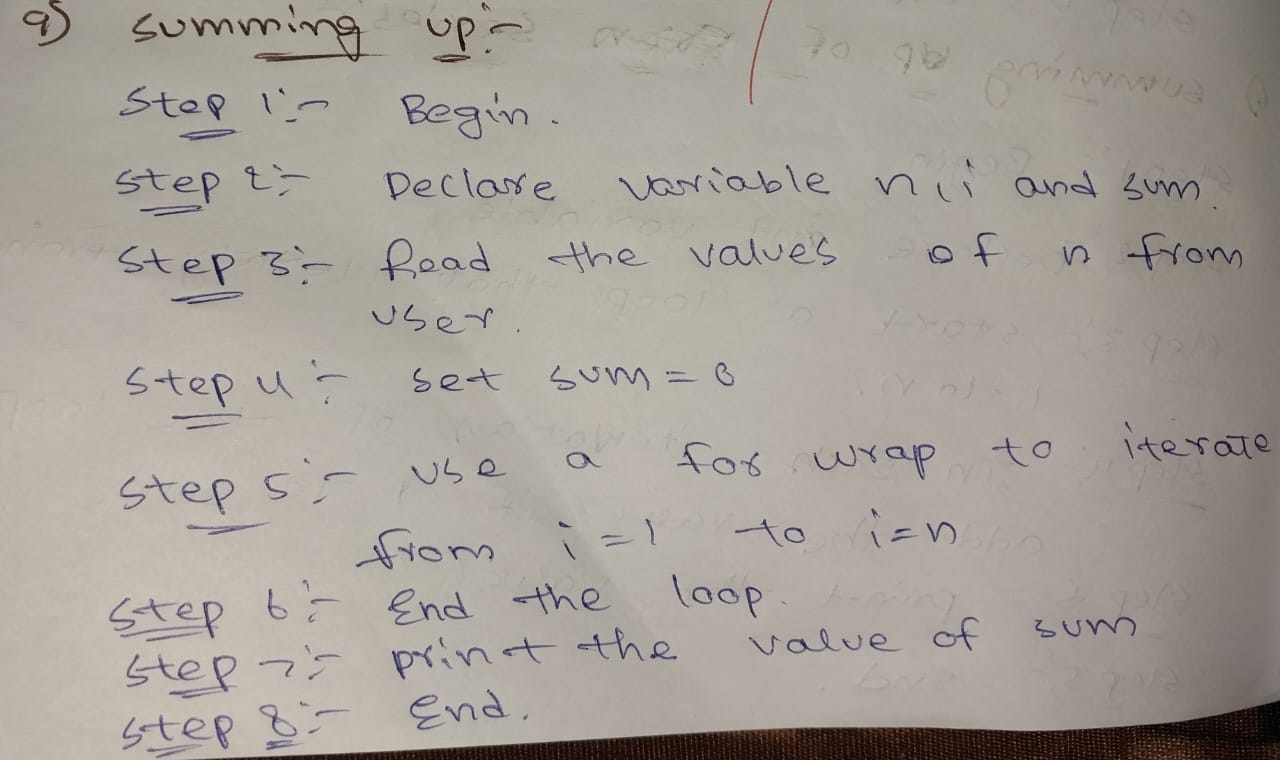 9) summing up:-
Step 1:- Begin.
Step 2:- Declare variable n, i and sum.
Step 3:- Read the values of n from
user.
Step 4:- set sum = 0
Step 5:- use a for wrap to iterate
from i = 1 to i = n
Step 6:- End the loop.
Step 7:- print the value of sum
Step 8:- End.